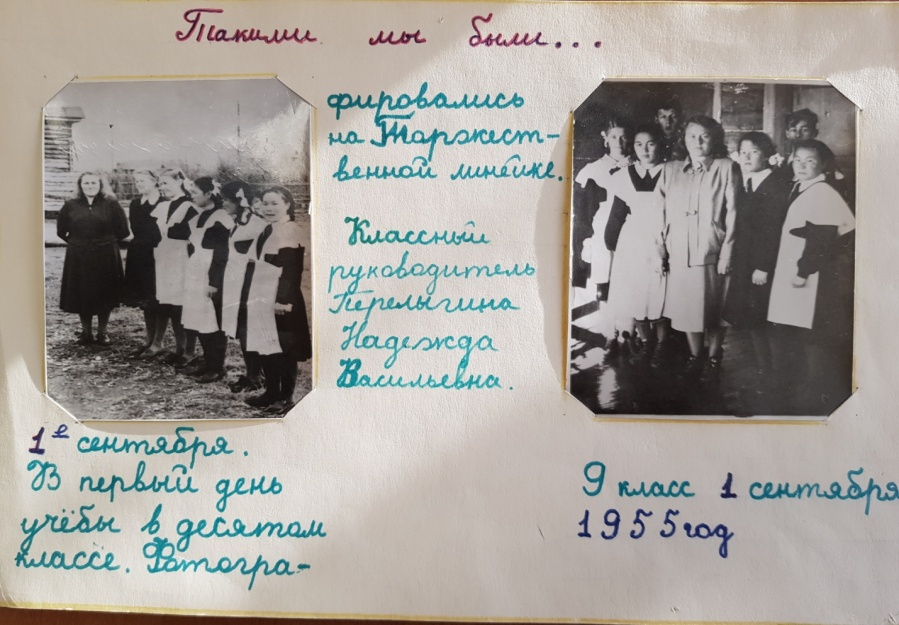 Такими мы были...
1е сентября.
В первый день
учёбы в десятом
классе. Фотогра-
фировались
на Торжест-
венной линейке.
Классный
руководитель
Перелыгина
Надежда
Васильевна.
9 класс 1 сентября
1955 год